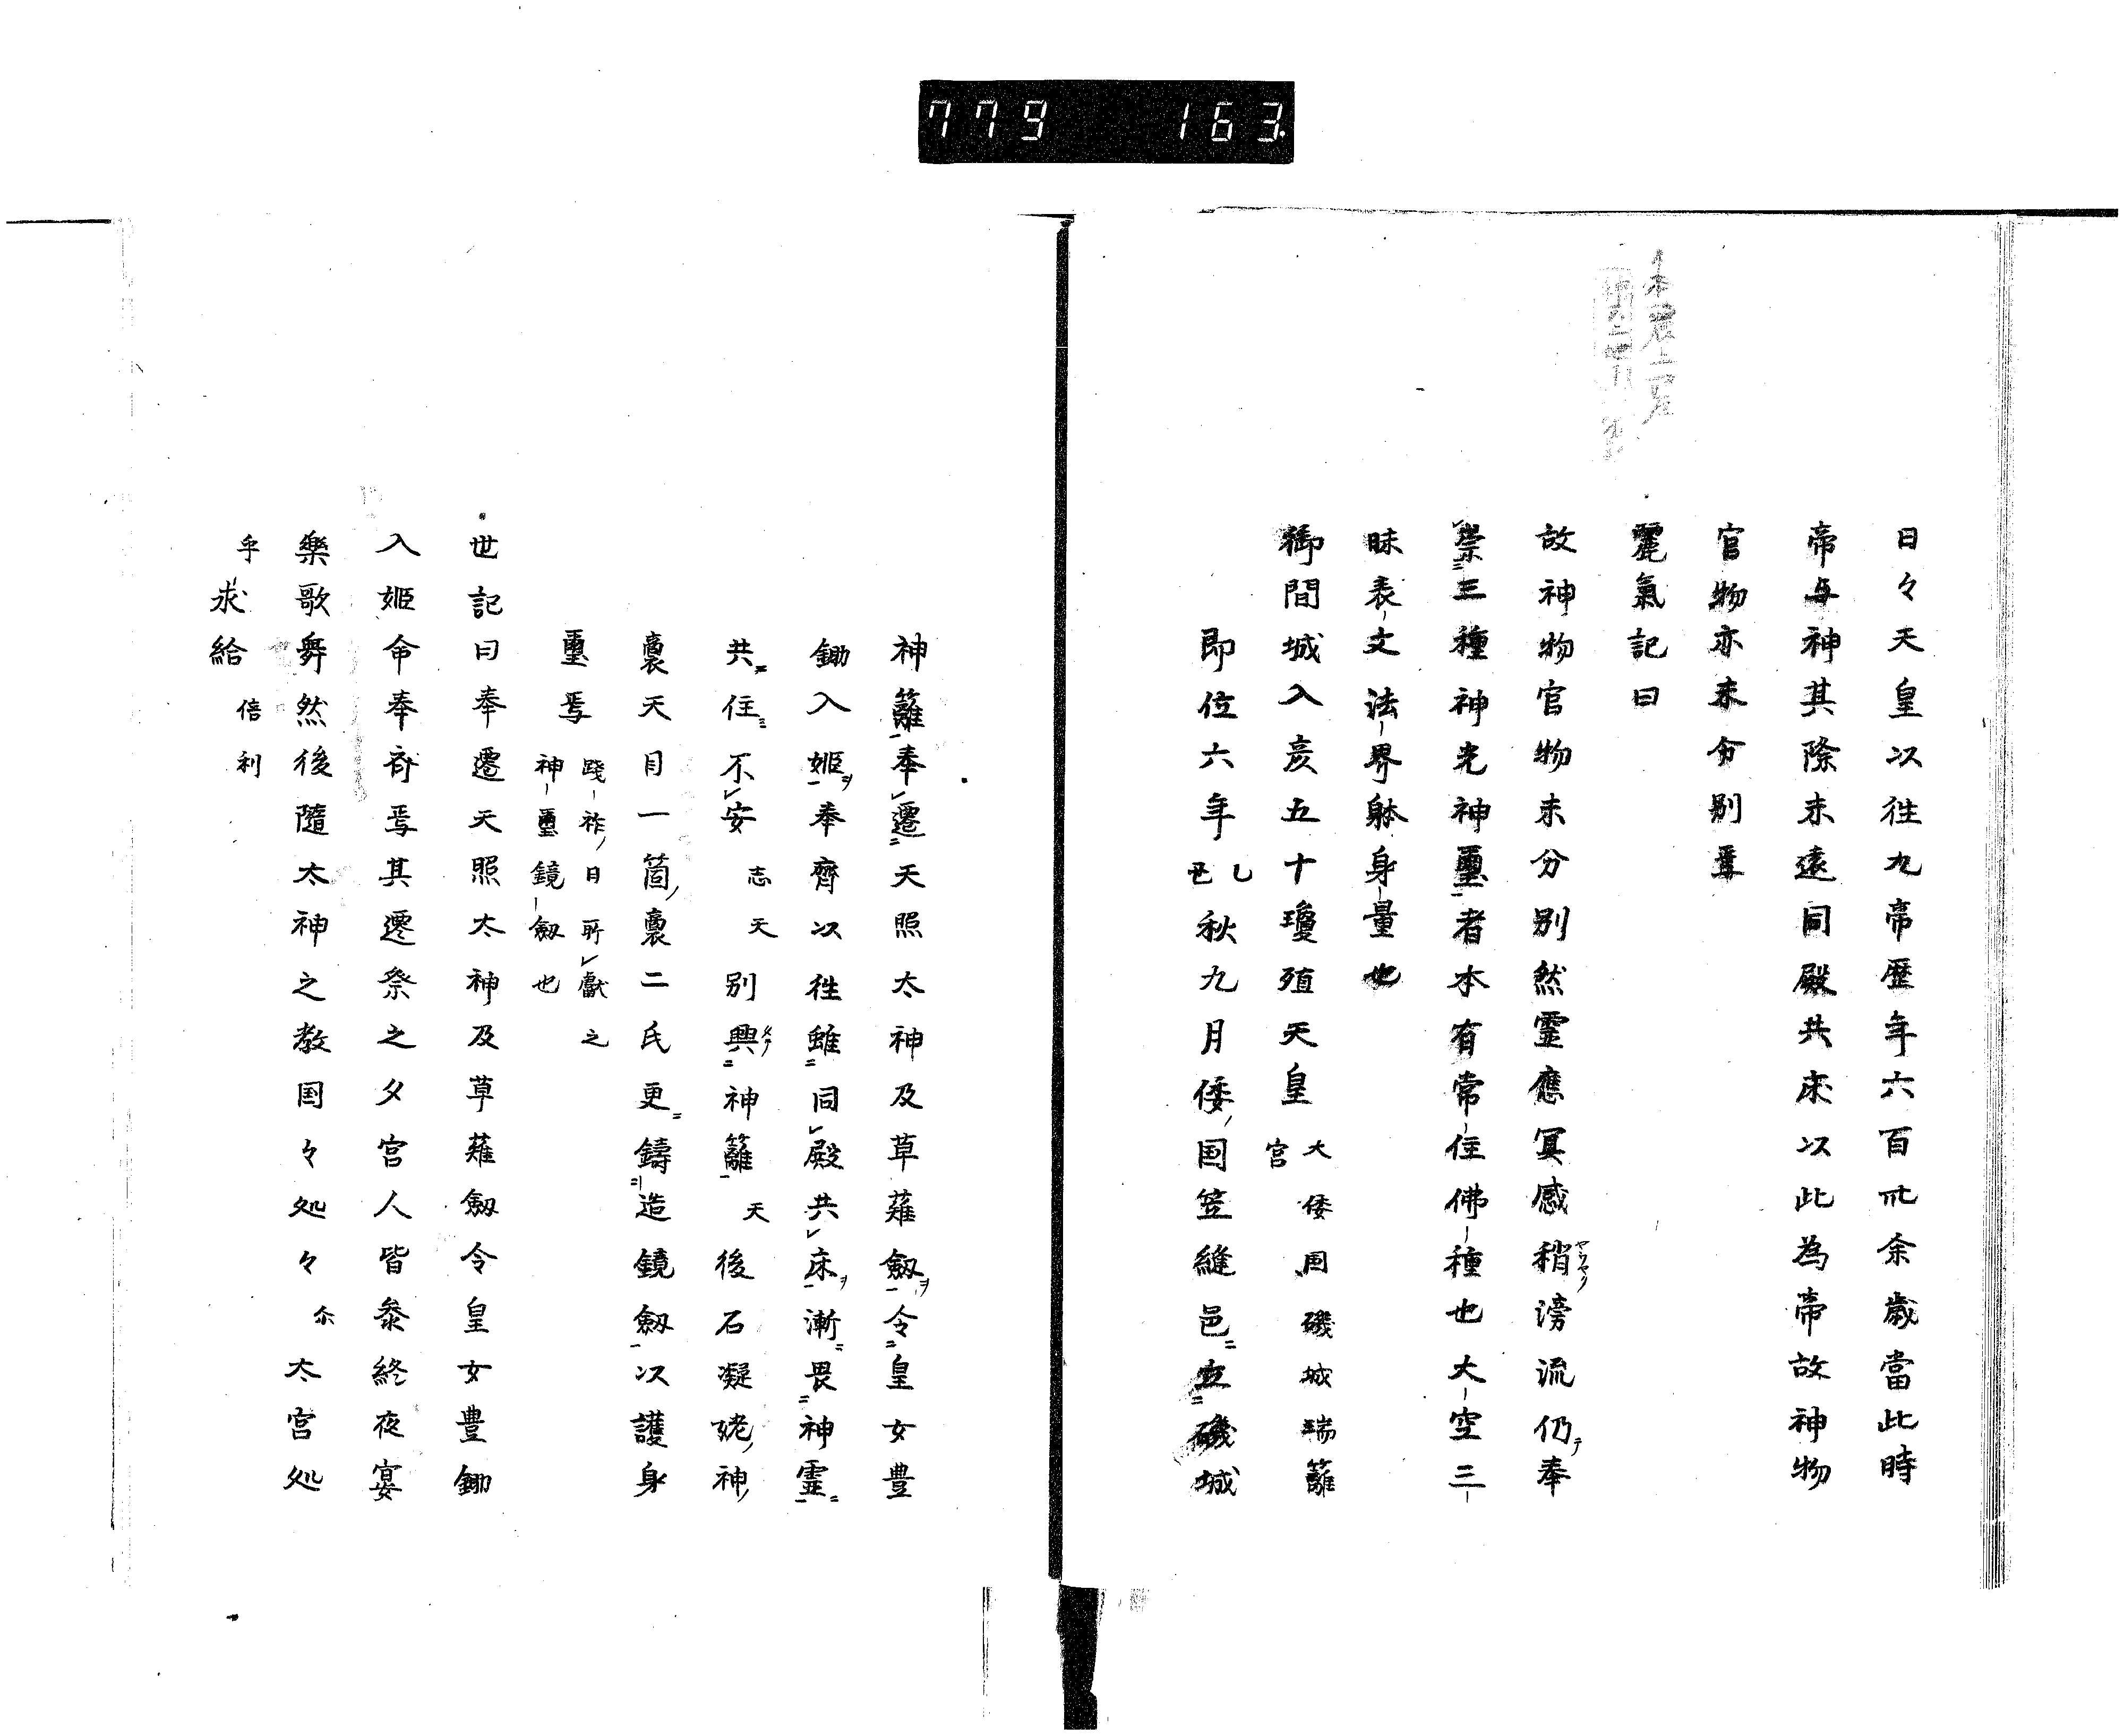 779 163
日々天皇以徃九帝歴年六百卅余歳當此時
帝与神其際未遠同殿共床以此為帝故神物
官物亦未分别焉
麗氣記曰
故神物官物未分別然霊應冥感稍滂流仍奉
ヤウヤク
テ
崇三種神光神璽者本有常住佛種也大空三
昧表文法界躰身量也
御間城入彦五十瓊殖天皇 大倭国磯城瑞籬
宮
即位六年 己丑 秋九月倭国笠縫邑立磯城
神籬奉遷天照太神及草薙劔ヲ令皇女豊
鋤入姫ヲ奉齊以徃雖同殿共床ヲ漸畏神霊
共住不安 志天 别興神籬 天 後石凝姥神
裔天目一箇裔二氏更鑄造鏡劔以護身
璽焉 踐祚日所獻之
神璽鏡劔也
世記曰奉遷天照太神及草薙劔令皇女豊鋤
入姫命奉斎焉其遷祭之夕宮人皆叅終夜宴
樂歌舞然後隨太神之教国々処々 尓 太宮処
乎 求給 倍利